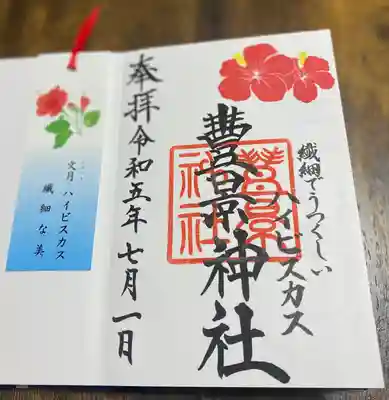 繊細でうつくしい
ハイビスカス
豊景神社
豊景
神社
奉拝 令和五年 七月一日
文月 ハイビスカス
繊細な美